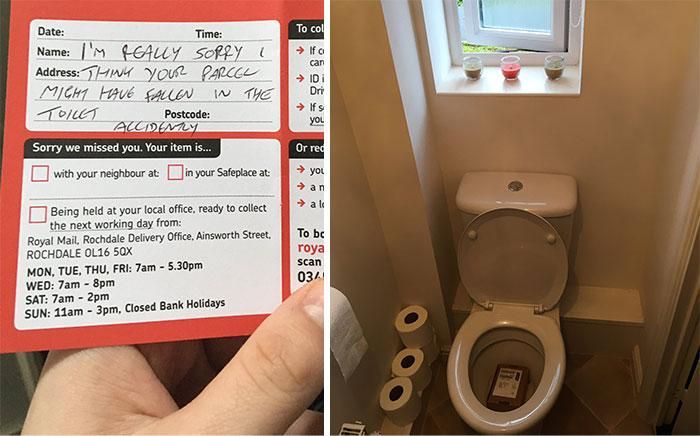 Date: Time:
Name: I'M REALLY SORRY I
Address: THINK YOUR PARCEL
MIGHT HAVE FALLEN IN THE
TOILET Postcode:
ACCIDENTLY
Sorry we missed you. Your item is...
with your neighbour at: in your Safeplace at:
Being held at your local office, ready to collect
the next working day from:
Royal Mail, Rochdale Delivery Office, Ainsworth Street,
ROCHDALE OL16 5QX
MON, TUE, THU, FRI: 7am - 5.30pm
WED: 7am - 8pm
SAT: 7am - 2pm
SUN: 11am - 3pm, Closed Bank Holidays
To col
If c
ID i
If s
you
Or rec
you
a n
a l
To bo
roya
scan
034